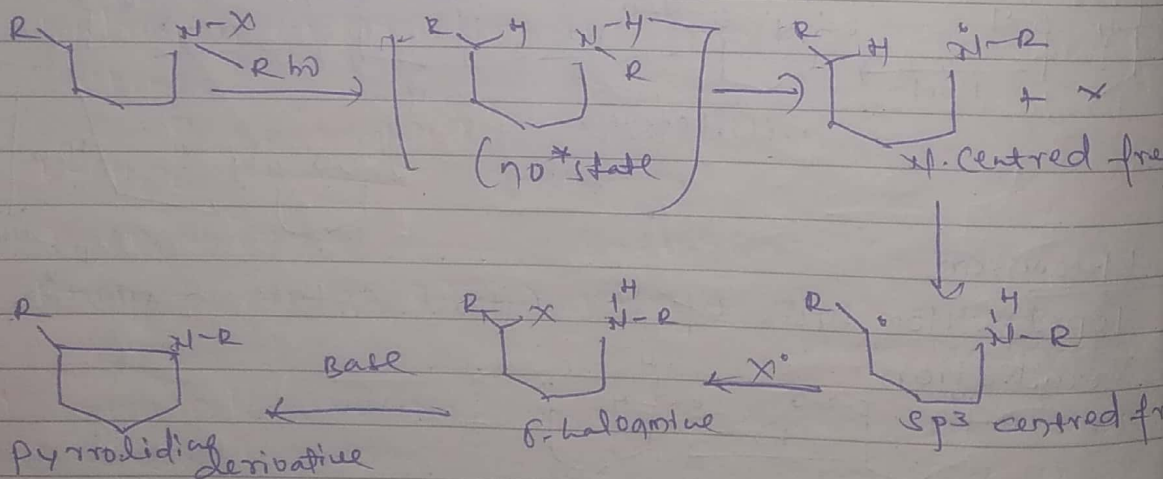 R N-X
R hν
R H N-H
R
(no* state
R H N-R
+ X
N. Centred fre
R H
N-R
sp3 centred f
X°
R X H
N-R
δ-haloamine
Base
R N-R
Pyrrolidine
derivative